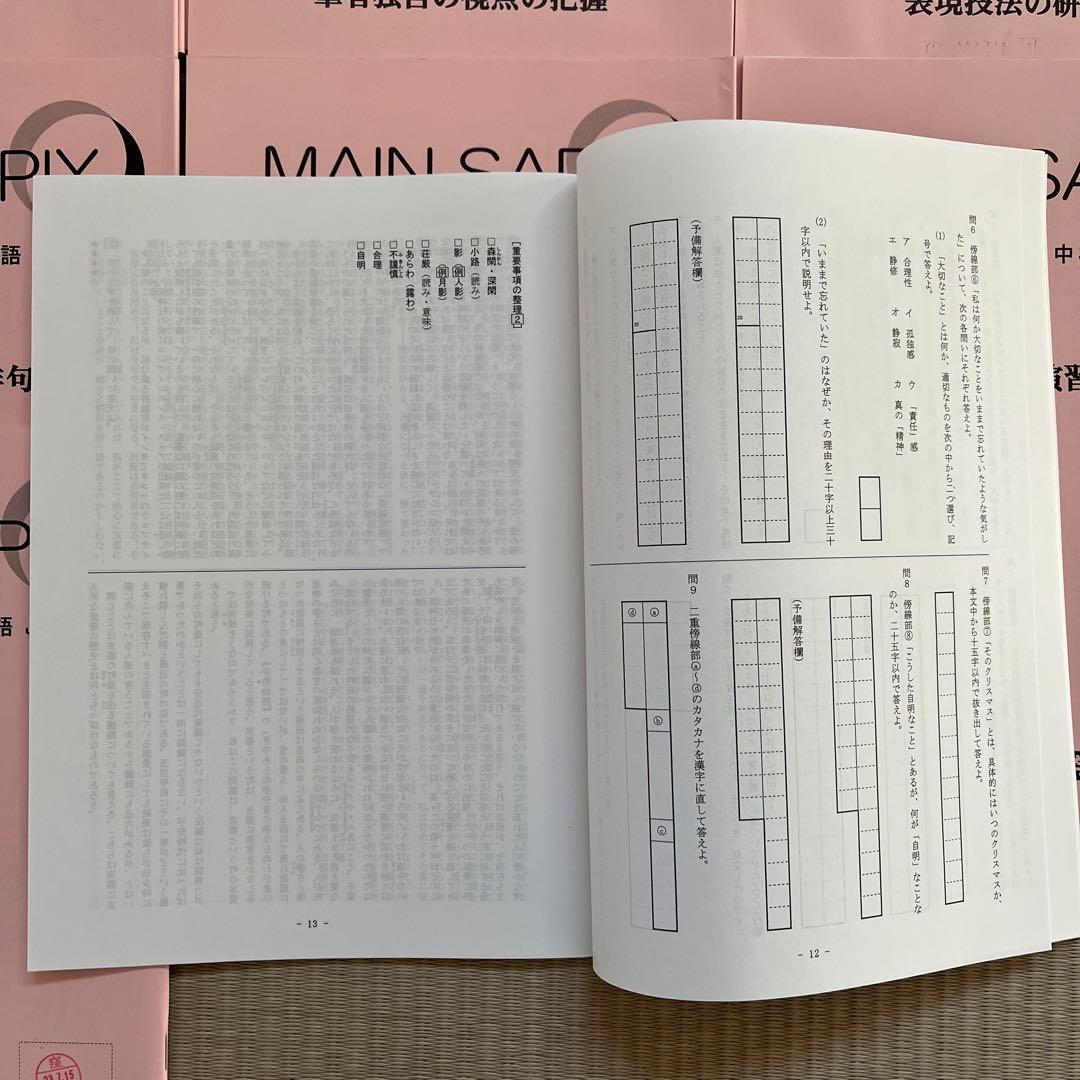 筆者独自の視点の把握
表現技法の研
PIX
MAIN SAP
SA
語
中
句
演習
語
窪
23.7.15
問6 傍線部⑥「私は何か大切なことをいままで忘れていたような気がし
た」について、次の各問いにそれぞれ答えよ。
(1) 「大切なこと」とは何か、適切なものを次の中から二つ選び、記
号で答えよ。
ア 合理性 イ 孤独感 ウ 「責任」感
エ 静修 オ 静寂 カ 真の「精神」
(2) 「いままで忘れていた」のはなぜか、その理由を二十字以上三十
字以内で説明せよ。
20
(予備解答欄)
20
問7 傍線部⑦「そのクリスマス」とは、具体的にはいつのクリスマスか、
本文中から十五字以内で抜き出して答えよ。
問8 傍線部⑧「こうした自明なこと」とあるが、何が「自明」なことな
のか、二十五字以内で答えよ。
(予備解答欄)
問9 二重傍線部ⓐ～ⓓのカタカナを漢字に直して答えよ。
ⓐ
ⓑ
ⓒ
ⓓ
- 12 -
[重要事項の整理2]
□森閑・深閑
□小路(読み)
□影 例人影)
例月影)
□荘厳(読み・意味)
□あらわ(露わ)
□不謹慎
□合理
□自明
- 13 -